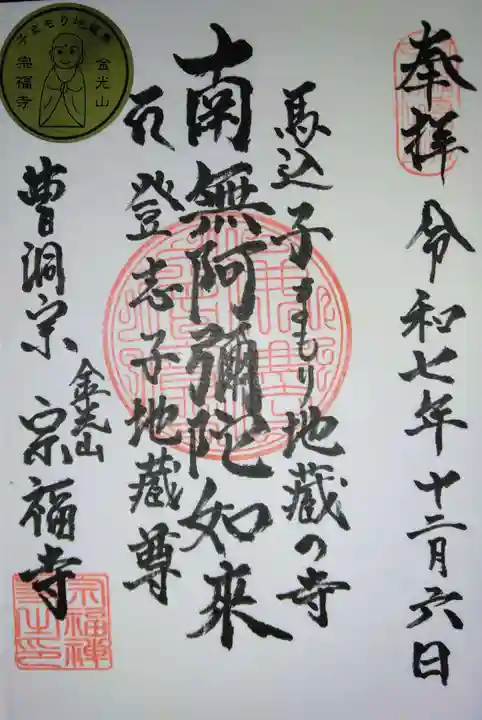 奉拝
令和七年十二月六日
馬込子まもり地蔵の寺
南無阿彌陀如来
登志子地蔵尊
曹洞宗
金光山
宗福寺
子まもり地蔵尊
金光山
宗福寺